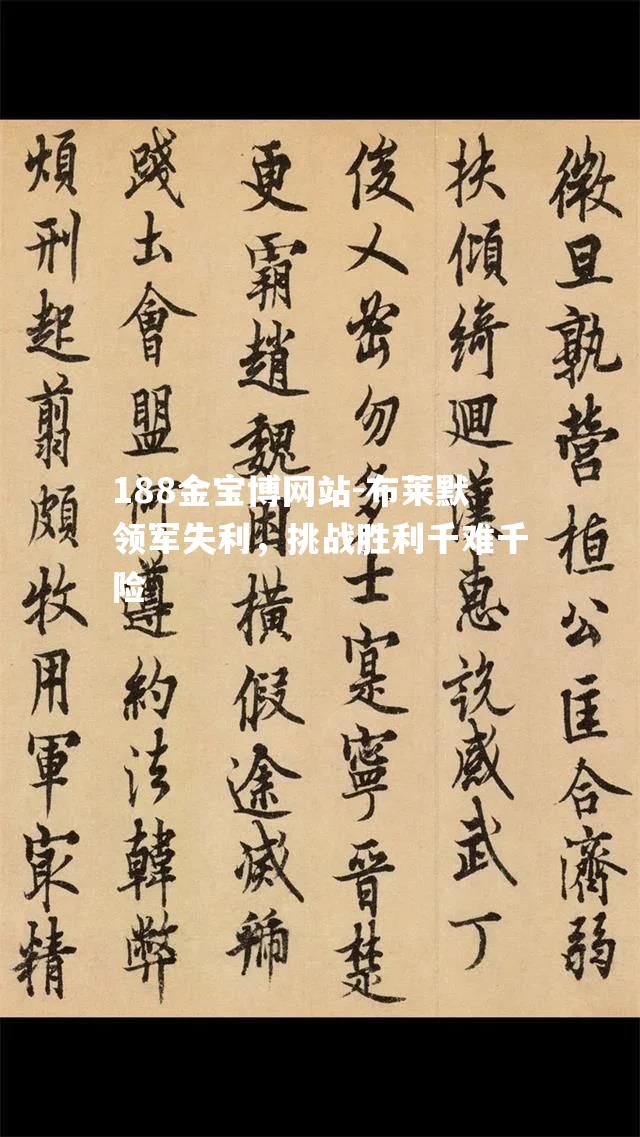 微旦孰營桓公匡合濟弱
扶傾綺迴漢惠說感武丁
俊乂密勿多士寔寧晉楚
更霸趙魏困橫假途滅虢
踐土會盟何遵約法韓弊
煩刑起翦頗牧用軍㝡精
188金宝博网站-布莱默
领军失利，挑战胜利千难千
险